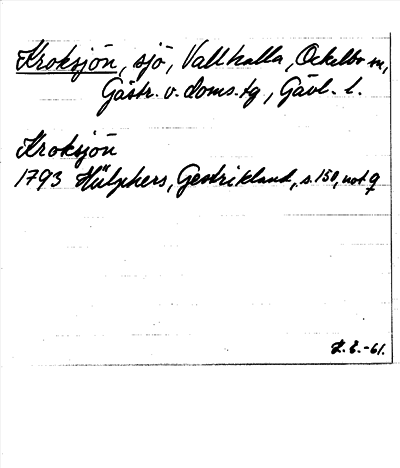 Kroksjön, sjö, Vallhalla, Ockelbo sn,
Gästr. v. doms.tg, Gävl. l.
Kroksjön
1793 Hülphers, Gestrikland, s. 150, not q
E.-61.